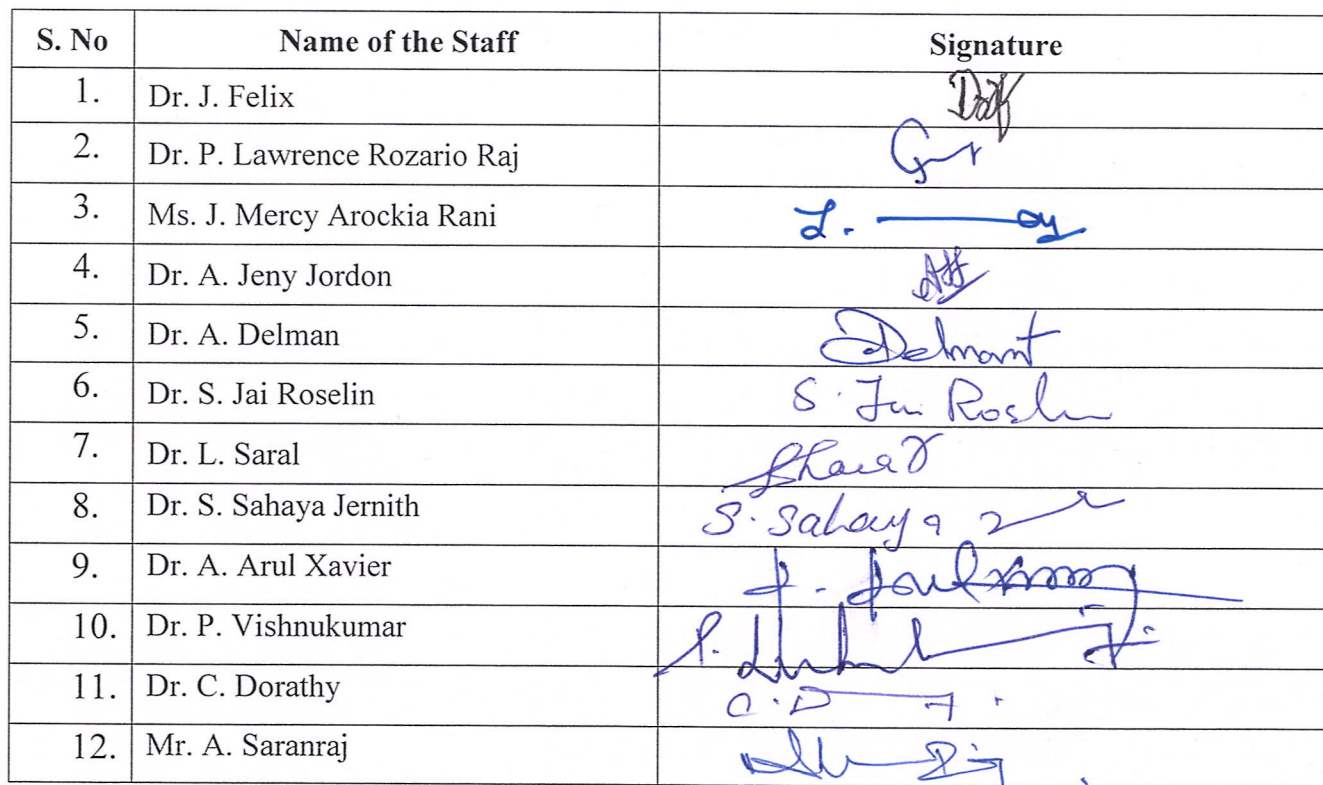 S. No Name of the Staff Signature
1. Dr. J. Felix
2. Dr. P. Lawrence Rozario Raj
3. Ms. J. Mercy Arockia Rani
4. Dr. A. Jeny Jordon
5. Dr. A. Delman Delmant
6. Dr. S. Jai Roselin S. Jai
7. Dr. L. Saral
8. Dr. S. Sahaya Jernith S. Sahaya
9. Dr. A. Arul Xavier
10. Dr. P. Vishnukumar
11. Dr. C. Dorathy C. D
12. Mr. A. Saranraj